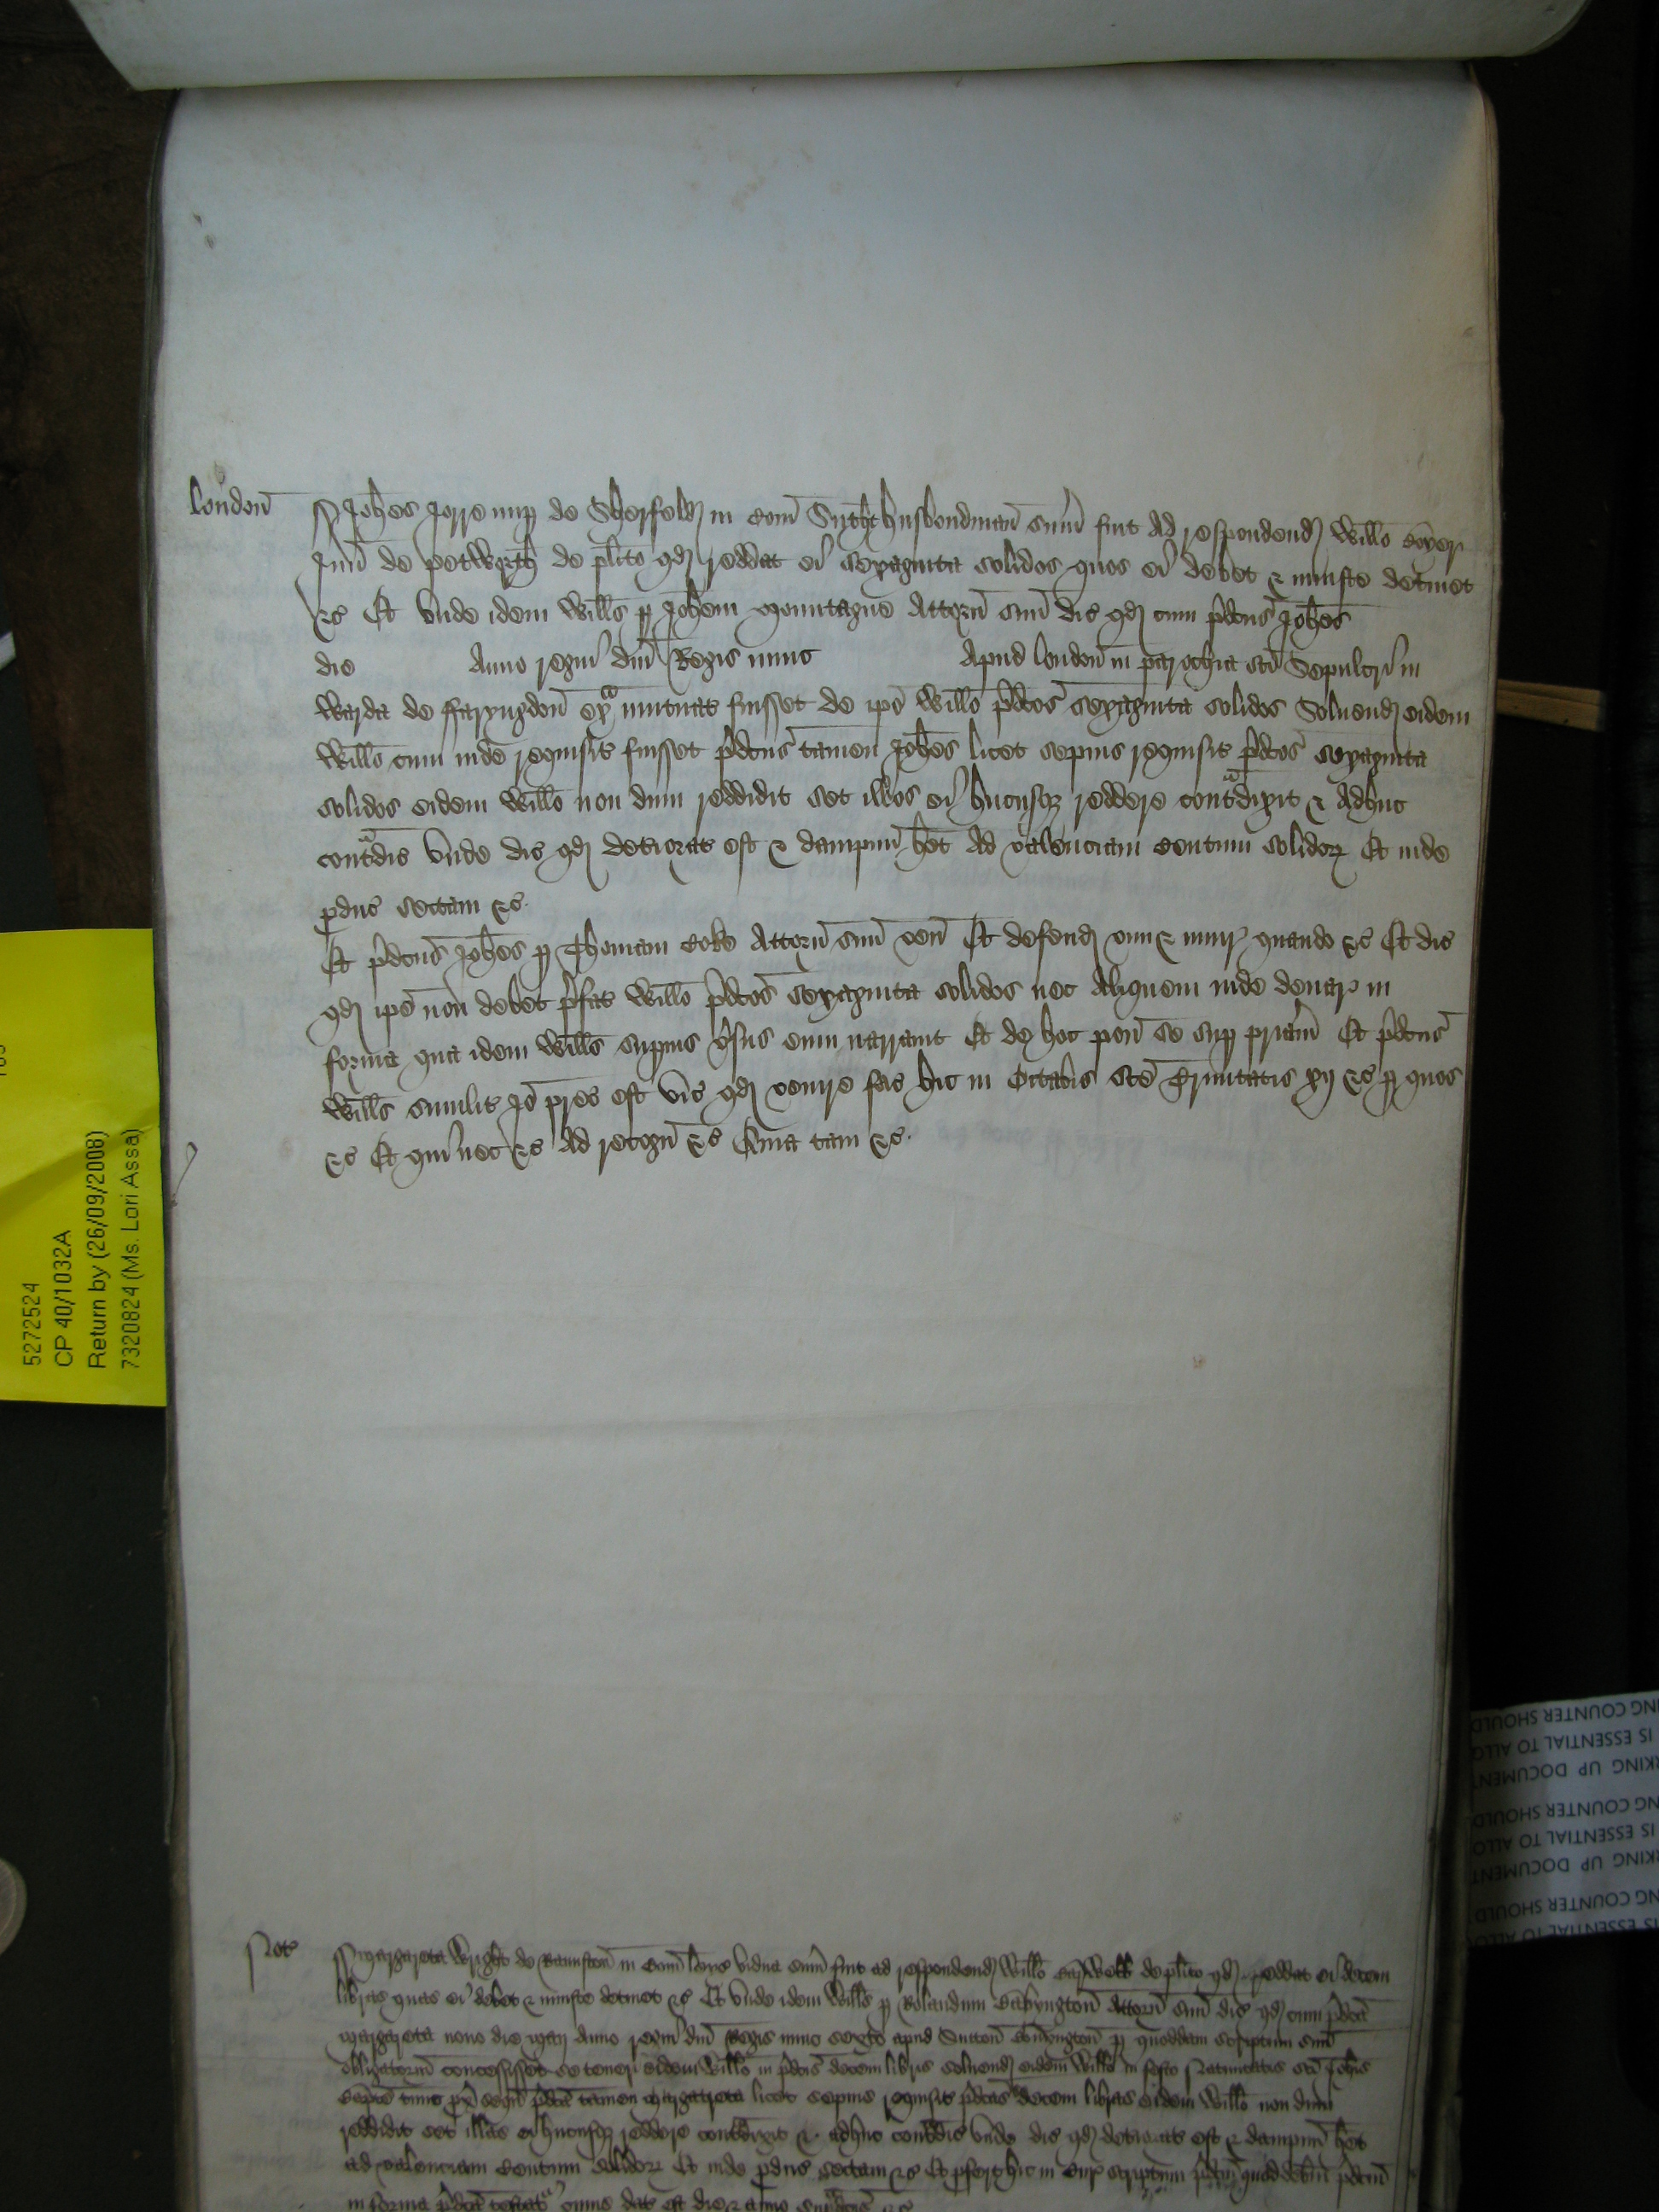 London̄ Joh̄es Jorre nup̱ de Sherfeld in Com̄ Sutht husbondman sum̄ fuit ad respondend Willo Cov̄er
Jun̄ de Petworth de pl̄ito qd reddat ei sexaginta solidos quos ei debet & iniuste detinet
&c Et unde idem Will̄s p̱ Joh̄em Mountague Attorn̄ suū dic̄ qd cum p̄dc̄us Joh̄es
die Anno regni dn̄i Regis nunc Apud london̄ in parochia sc̄i Sepulcri in
Warda de ffaryngdon̄ ex̄ mutuat̄ fuisset de ip̄o Willo p̄dc̄os sexaginta solidos Soluend eidem
Willo cum inde requisit̄ fuisset p̄dc̄us tamen Joh̄es licet sepius requisit̄ p̄dc̄os sexaginta
solidos eidem Willo non dum reddidit set illos ei hucusq̄ reddere cont̄dixit & Adhuc
cont̄dic̄ Unde dic̄ qd deteriorat̄ est & dampnū h̄et Ad valenciam Centum solidor̄ Et inde
p̱duc̄ sectam &c
Et p̄dc̄us Joh̄es p̱ Thomam Coke Attorn̄ suū ven̄ Et defend vim & iniur̄ quando &c Et dic̄
qd ip̄e non debet p̄fat̄ Willo p̄dc̄os sexaginta solidos nec Aliquem inde denar̄ in
forma qua idem Will̄s sup̱ius v̄sus eum narrauit Et de hoc pon̄ se sup̱ pr̄iam Et p̄dc̄us
Will̄s similit̄ Jō prec̄ est vic̄ qd venire fac̄ hic in Octab̄is sc̄e Trinitatis xij &c p̱ quos
&c Et qui nec &c Ad recogn̄ &c Quia tam &c
Not̄ Margareta Wright de in Com̄ vidua sum̄ fuit ad respondend Willo de pl̄ito qd reddat ei decem
libras quas ei debet & iniuste detinet &c Et unde idem Will̄s p̱ Rolandum Babyngton̄ Attorn̄ suū dic̄ qd cum p̄dc̄a
Margareta nono die Maij Anno regni dn̄i Regis nunc sexto apud Sutton̄ p̱ quoddam scriptum suū
obligatorū concessisset se teneri eidem Willo in p̄dc̄is decem libris soluend eidem Willo in festo Natiuitatis sc̄i Joh̄is
Bapt̄e tunc px̄ seqū p̄dc̄a tamen Margareta licet sepius requisit̄ p̄dc̄as decem libras eidem Willo non dum
reddidit set illas ei hucusq̄ reddere cont̄dixit & adhuc cont̄dic̄ Unde dic̄ qd deteriorat̄ est & dampnū h̄et
ad valenciam Centum solidor̄ Et inde p̱duc̄ sectam &c Et p̱fert hic in Cur̄ scriptum p̄dc̄m quod debitū p̄dc̄m
in forma p̄dc̄a testat̄ cuius dat̄ est die & anno sup̄dc̄is &c
5272524
CP 40/1032A
Return by (26/09/2008)
7320824 (Ms. Lori Assa)
NG COUNTER SHOULD
IS ESSENTIAL TO ALLO
RKING UP DOCUMENT
NG COUNTER SHOULD
IS ESSENTIAL TO ALLO
RKING UP DOCUMENT
NG COUNTER SHOULD
IS ESSENTIAL TO ALLO